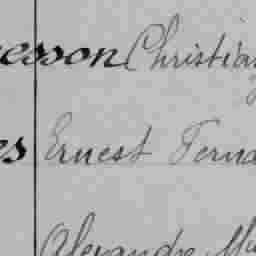 esson Christia
es Ernest Ferna
Alexandre Ma